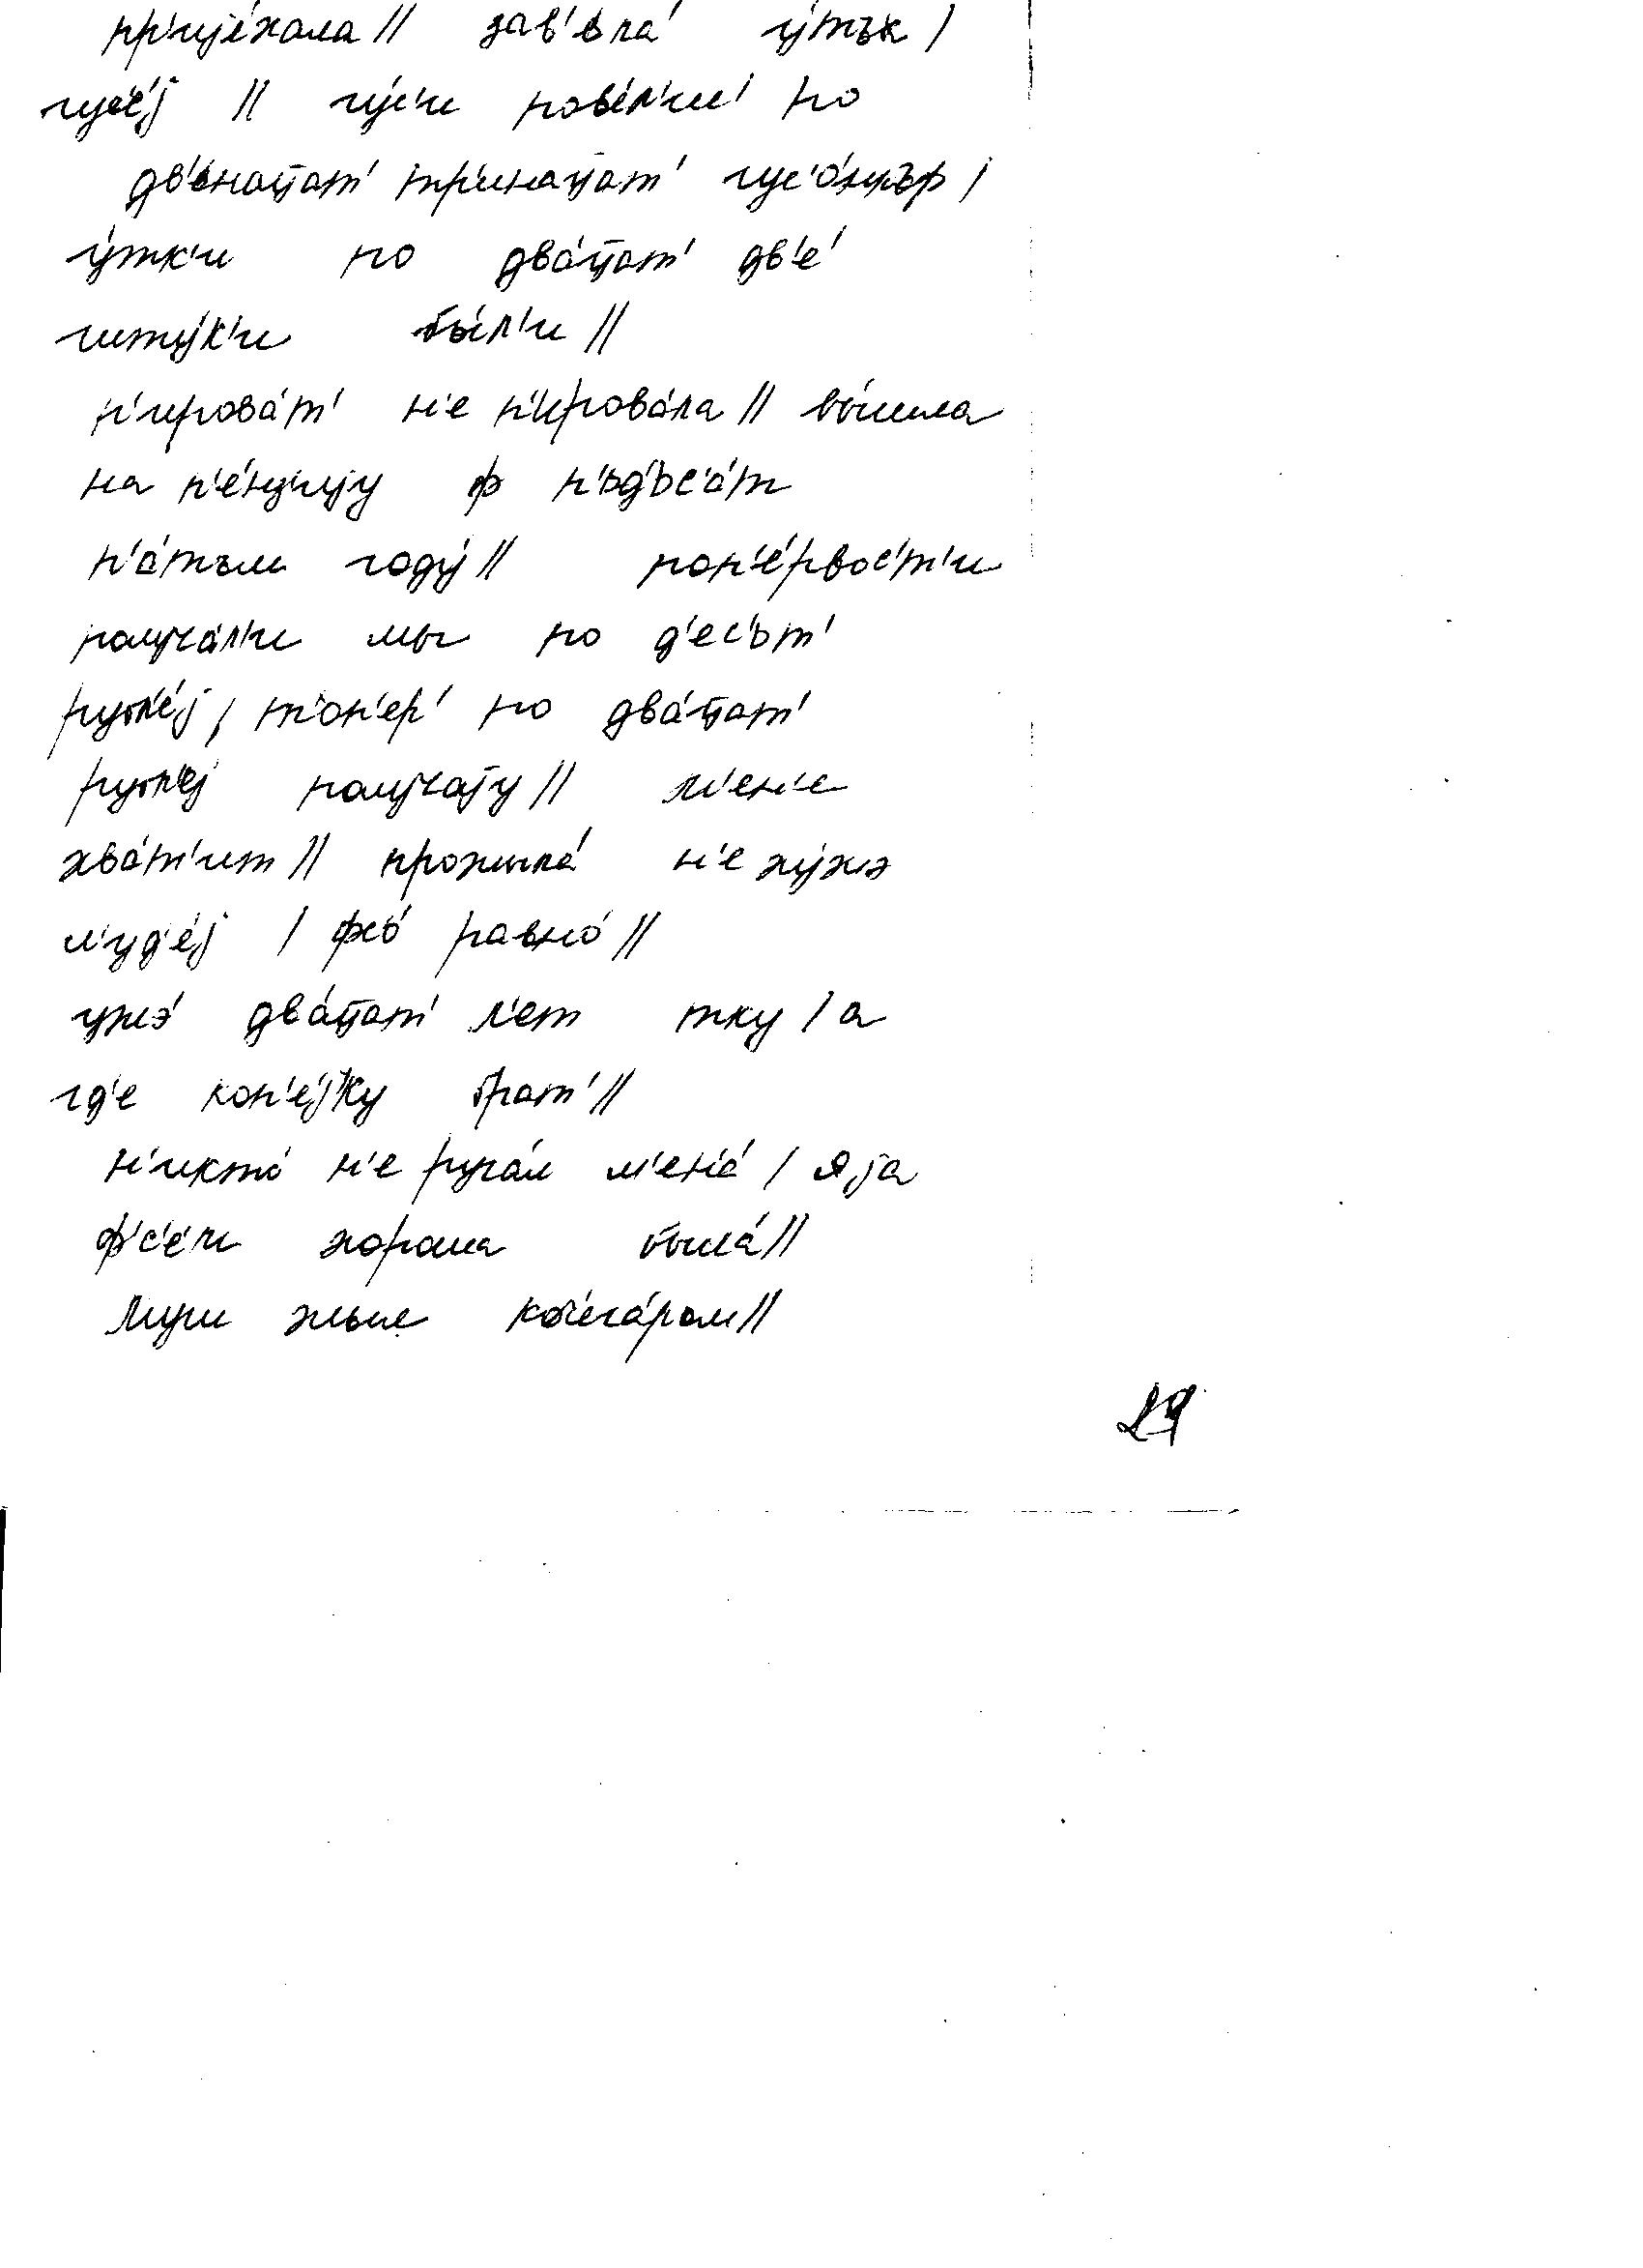 пр'ијéхала // зав'ьлá ýтък /
гус'éј // гýс'и повéл'ис' по
дв'ьнац̄ат' тр'инац̄ат' гус'óнкъф /
ýтк'и по двáц̄ат' дв'é
штýк'и бы́л'и //
п'ировáт' н'е п'ировáла // вы́шла
на п'éнц'ију ф п'ьд'ьс'áт
п'áтъм годý // поп'éрвос'т'и
получáл'и мы по д'ес'ьт'
рубл'éј / т'оп'ер' по двáц̄ат'
рубл'еј получáју // м'ен'е
хвáт'ит // прожылá н'е хýжэ
л'уд'éј / фс'ó равнó //
ужэ́ двáц̄ат' л'ет тку / а
гд'е коп'éјку брат' //
н'иктó н'е ругáл м'ен'á / я ја
ф'с'éм хороша былá //
Муш жыл кочегáром //
29